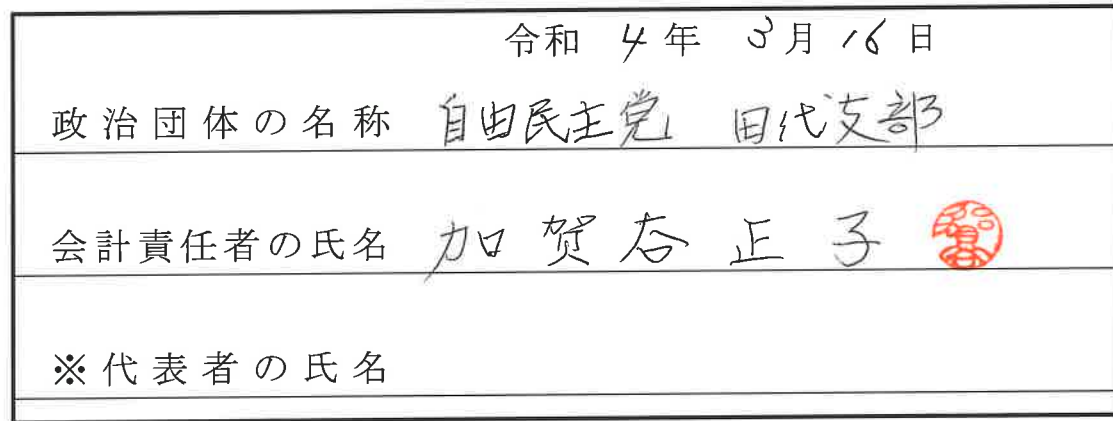 令和 4年 3月 16日
政治団体の名称 自由民主党 田代支部
会計責任者の氏名 加賀谷正子
※代表者の氏名